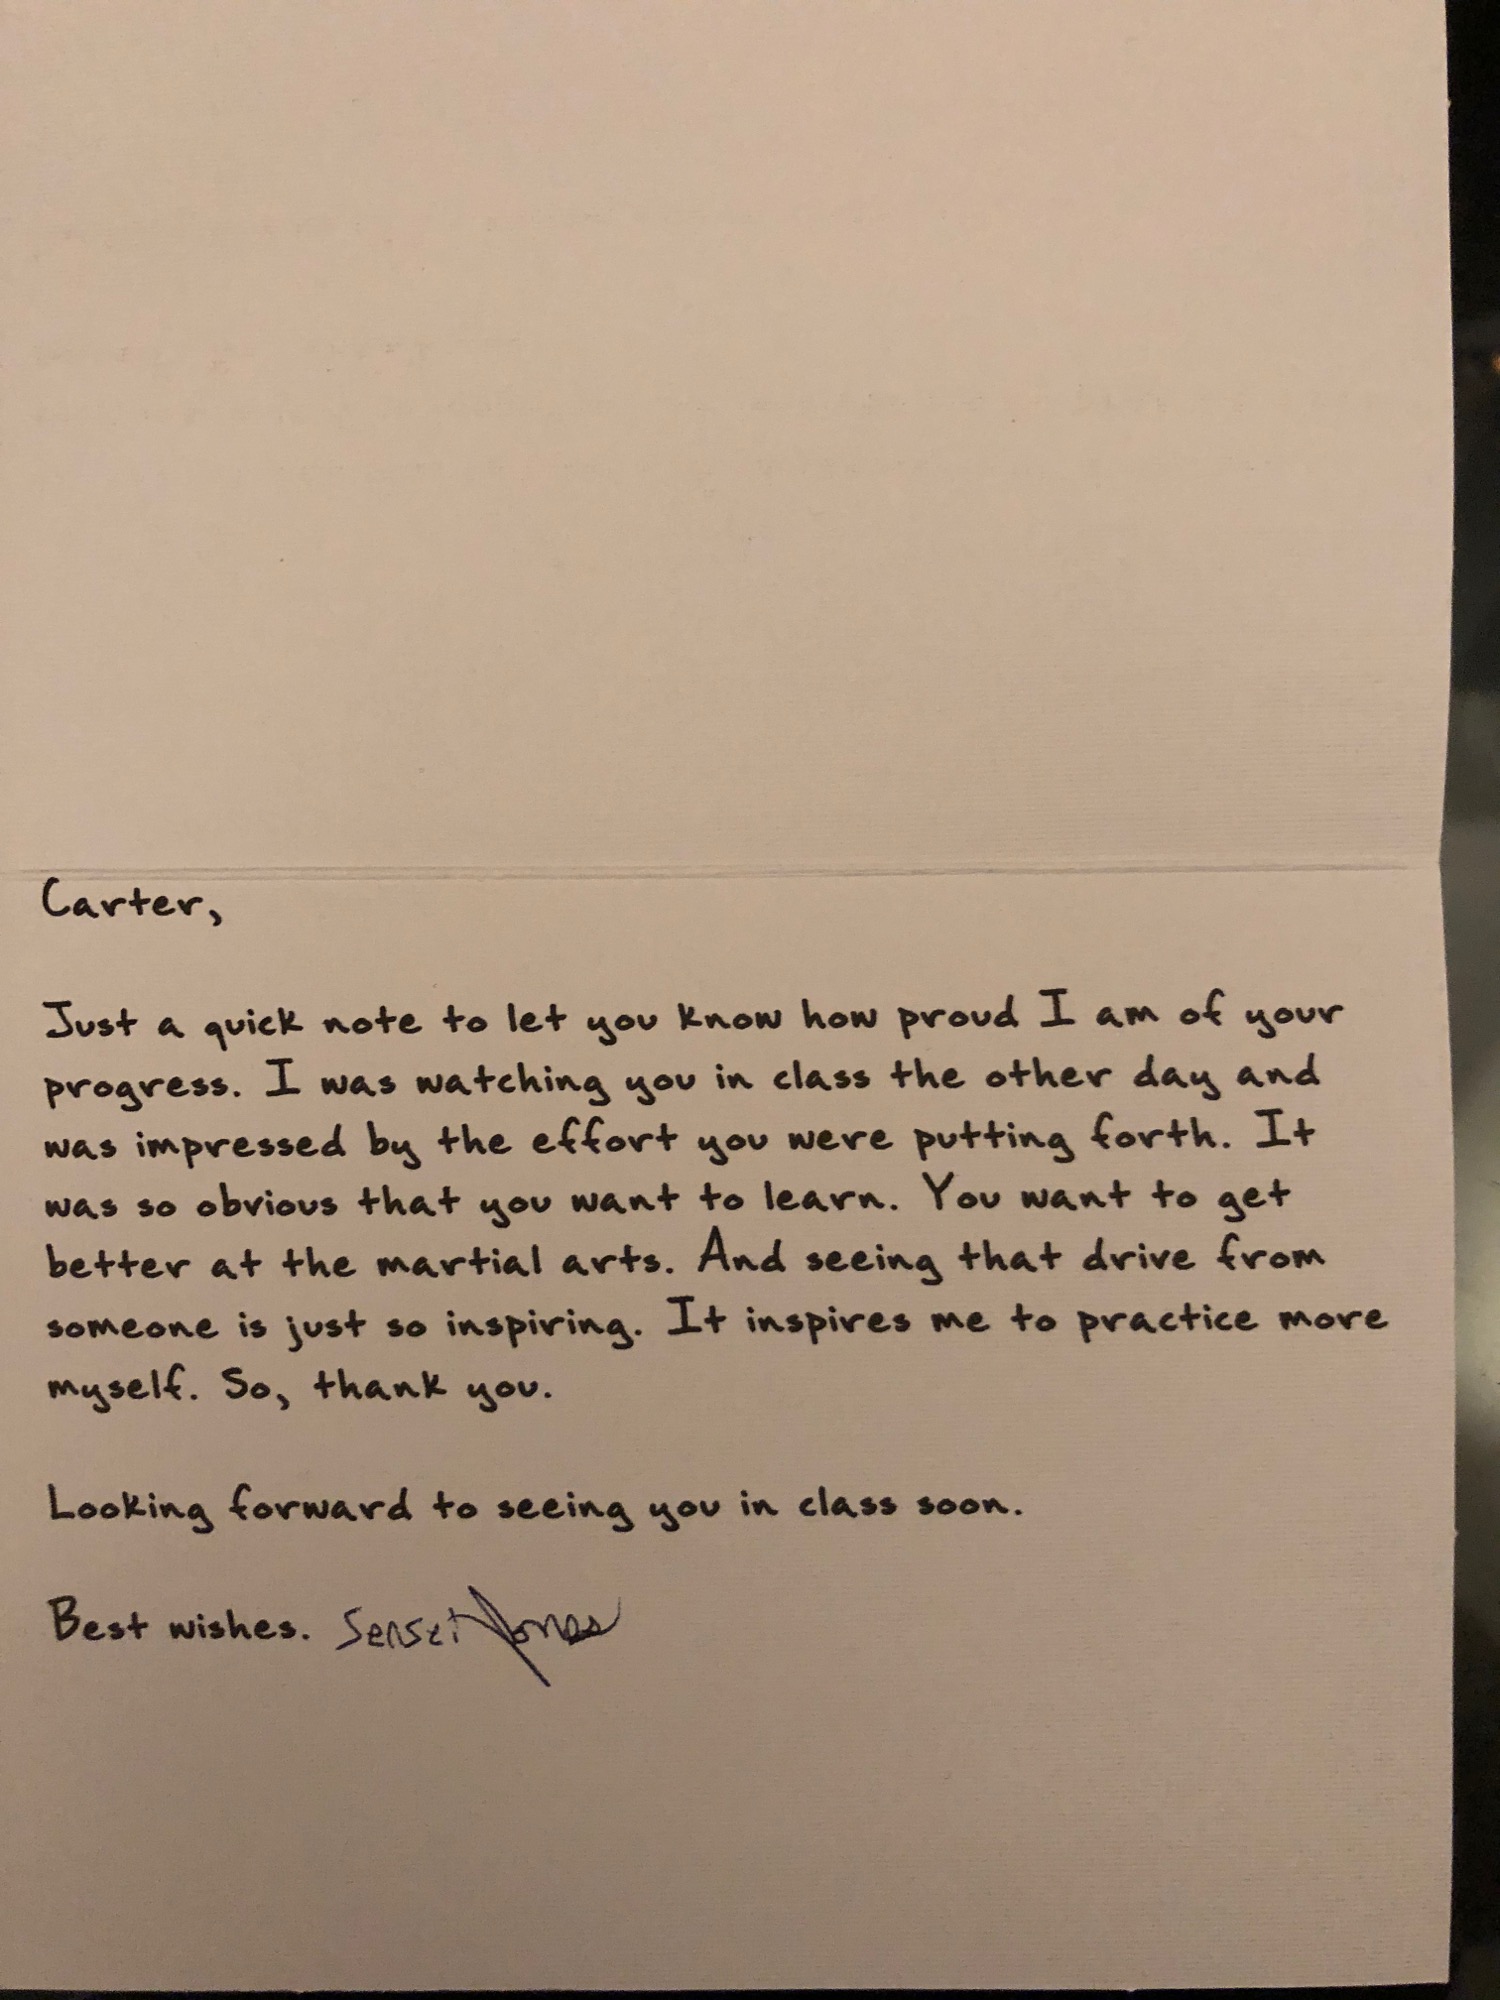 Carter,
Just a quick note to let you know how proud I am of your
progress. I was watching you in class the other day and
was impressed by the effort you were putting forth. It
was so obvious that you want to learn. You want to get
better at the martial arts. And seeing that drive from
someone is just so inspiring. It inspires me to practice more
myself. So, thank you.
Looking forward to seeing you in class soon.
Best wishes. Sensei Jones